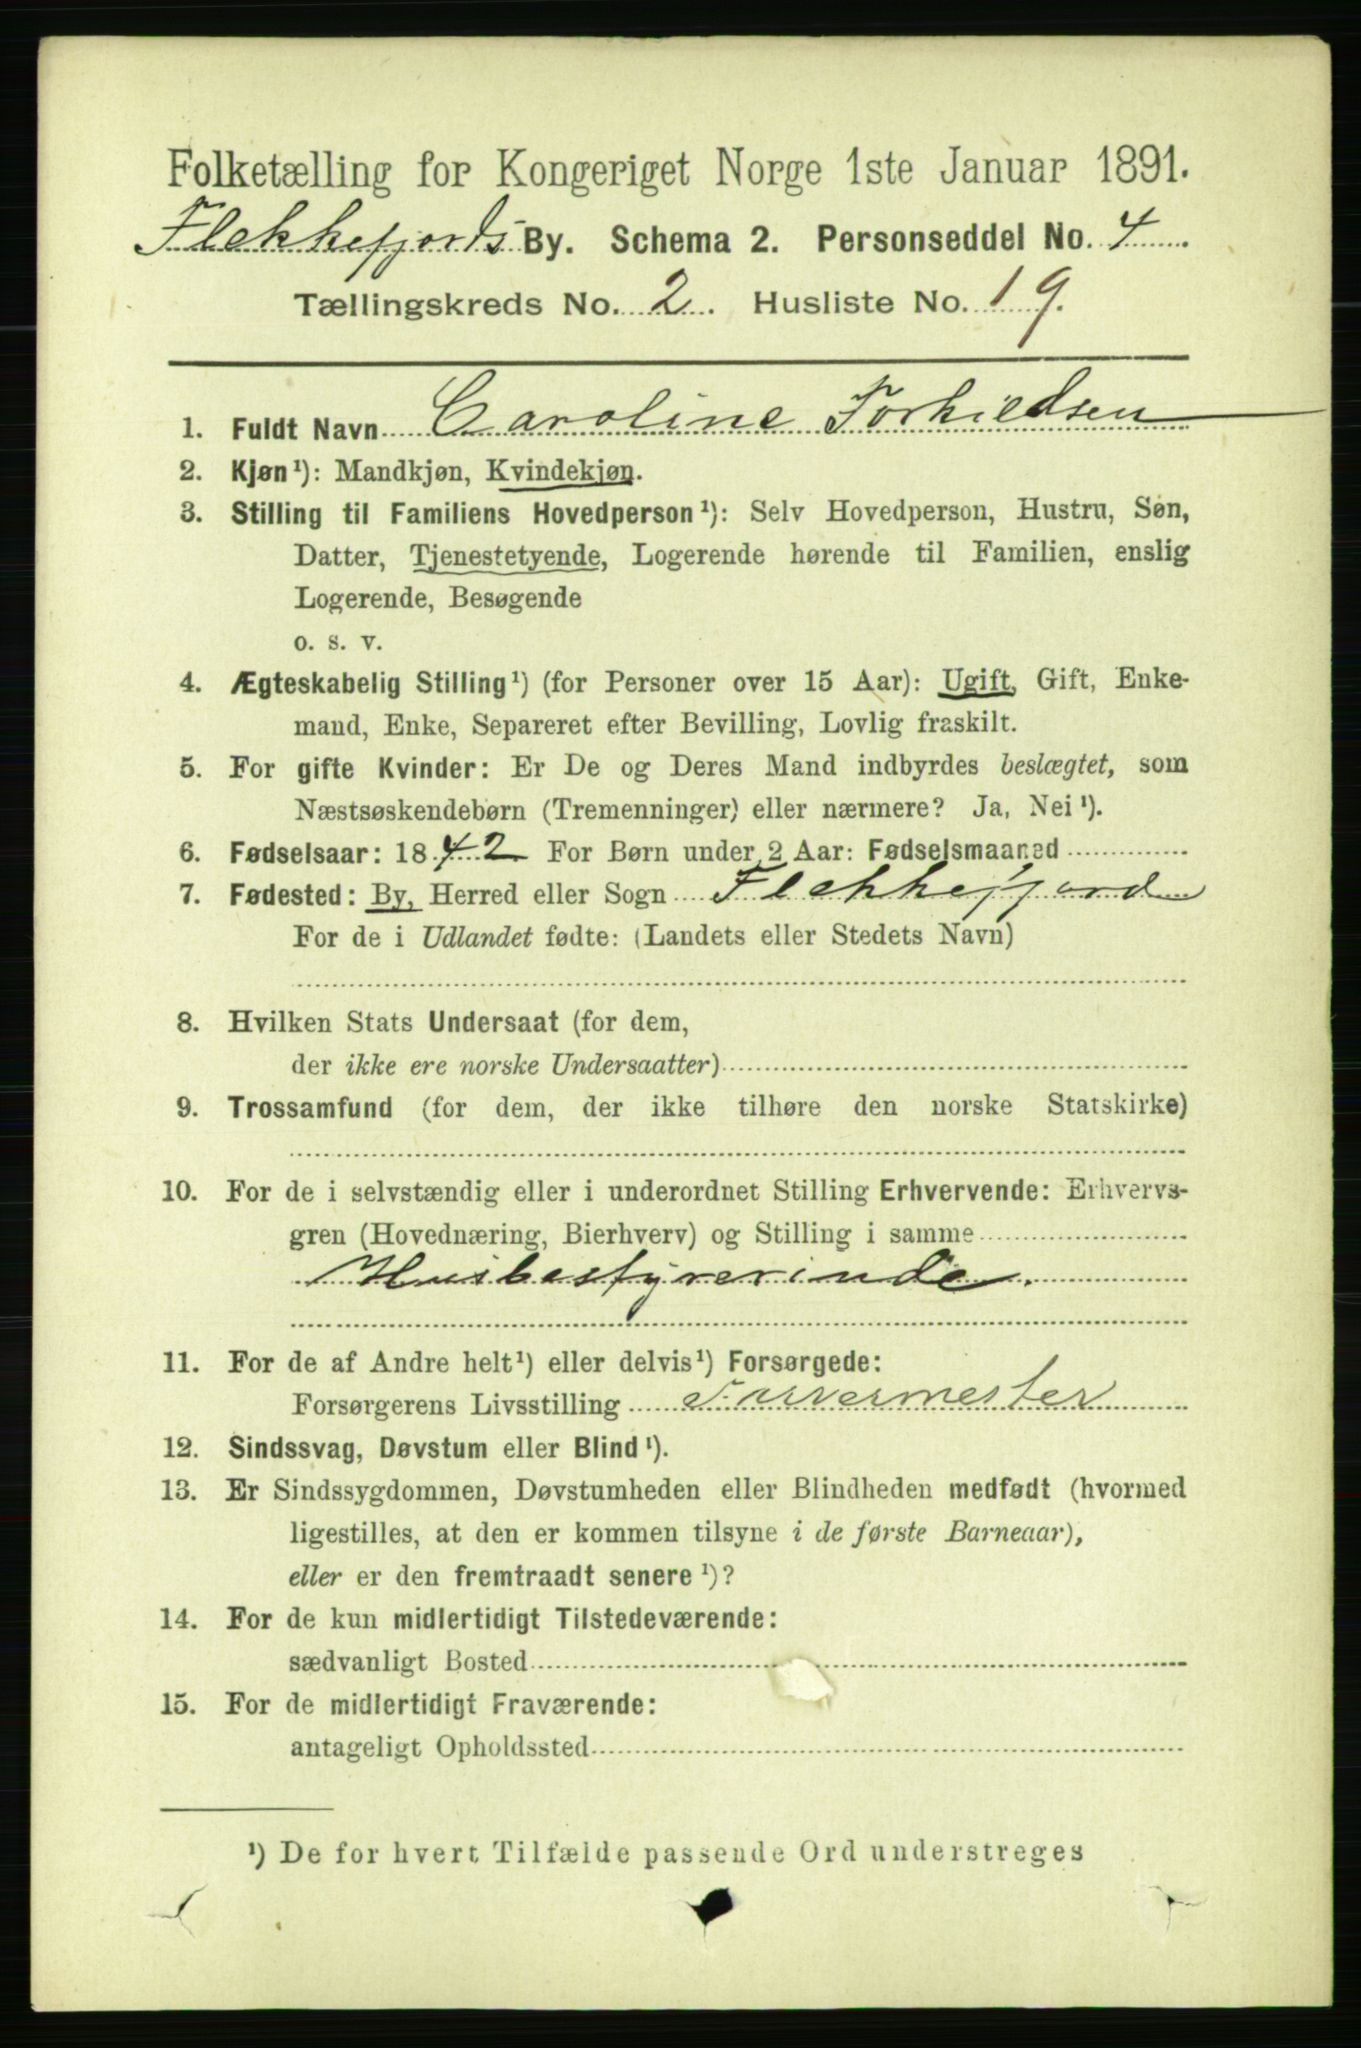 Folketælling for Kongeriget Norge 1ste Januar 1891.
Flekkefjords By. Schema 2. Personseddel No. 4
Tællingskreds No. 2. Husliste No. 19.
1. Fuldt Navn Caroline Torkildsen
2. Kjøn¹): Mandkjøn, Kvindekjøn.
3. Stilling til Familiens Hovedperson¹): Selv Hovedperson, Hustru, Søn,
Datter, Tjenestetyende, Logerende hørende til Familien, enslig
Logerende, Besøgende
o. s. v.
4. Ægteskabelig Stilling¹) (for Personer over 15 Aar): Ugift, Gift, Enke-
mand, Enke, Separeret efter Bevilling, Lovlig fraskilt.
5. For gifte Kvinder: Er De og Deres Mand indbyrdes beslægtet, som
Næstsøskendebørn (Tremenninger) eller nærmere? Ja, Nei¹).
6. Fødselsaar: 1842 For Børn under 2 Aar: Fødselsmaaned
7. Fødested: By, Herred eller Sogn Flekkefjord
For de i Udlandet fødte: (Landets eller Stedets Navn)
8. Hvilken Stats Undersaat (for dem,
der ikke ere norske Undersaatter)
9. Trossamfund (for dem, der ikke tilhøre den norske Statskirke)
10. For de i selvstændig eller i underordnet Stilling Erhvervende: Erhvervs-
gren (Hovednæring, Bierhverv) og Stilling i samme
Husbestyrerinde.
11. For de af Andre helt¹) eller delvis¹) Forsørgede:
Forsørgerens Livsstilling Farvermester
12. Sindssvag, Døvstum eller Blind¹).
13. Er Sindssygdommen, Døvstumheden eller Blindheden medfødt (hvormed
ligestilles, at den er kommen tilsyne i de første Barneaar),
eller er den fremtraadt senere¹)?
14. For de kun midlertidigt Tilstedeværende:
sædvanligt Bosted
15. For de midlertidigt Fraværende:
antageligt Opholdssted
¹) De for hvert Tilfælde passende Ord understreges